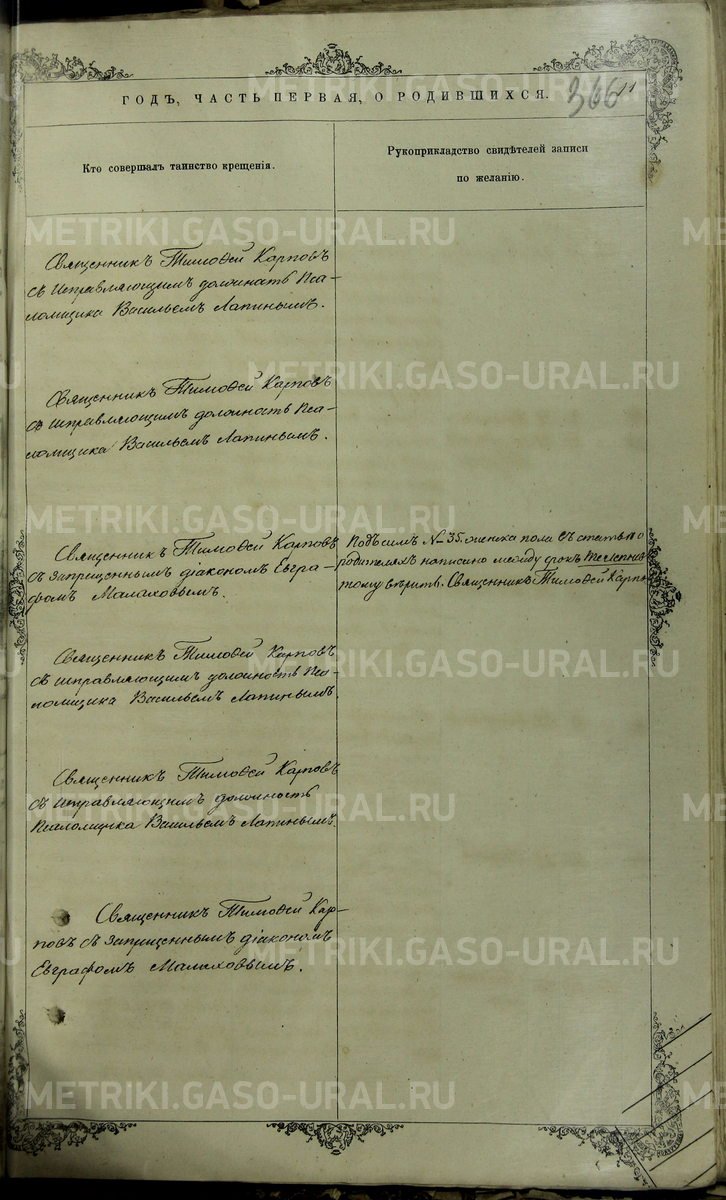 ГОДЪ, ЧАСТЬ ПЕРВАЯ, О РОДИВШИХСЯ.
366
Кто совершалъ таинство крещенія.
Рукоприкладство свидѣтелей записи
по желанію.
METRIKI.GASO-URAL.RU
Священникъ Тимоѳей Карповъ
съ исправляющимъ должность Пса-
ломщика Васильемъ Лапинымъ.
Священникъ Тимоѳей Карповъ
съ исправляющимъ должность Пса-
ломщика Васильемъ Лапинымъ.
Священникъ Тимоѳей Карповъ
съ запрещеннымъ діакономъ Евгра-
фомъ Малаховымъ.
Подъ симъ № 35. женска пола въ статьѣ о
родителяхъ написано между строкъ
тому вѣрить. Священникъ Тимоѳей Карпо
Священникъ Тимоѳей Карповъ
съ исправляющимъ должность Пса-
ломщика Васильемъ Лапинымъ.
Священникъ Тимоѳей Карповъ
съ исправляющимъ должность
Псаломщика Васильемъ Лапинымъ.
Священникъ Тимоѳей Кар-
повъ съ запрещеннымъ діакономъ
Евграфомъ Малаховымъ.